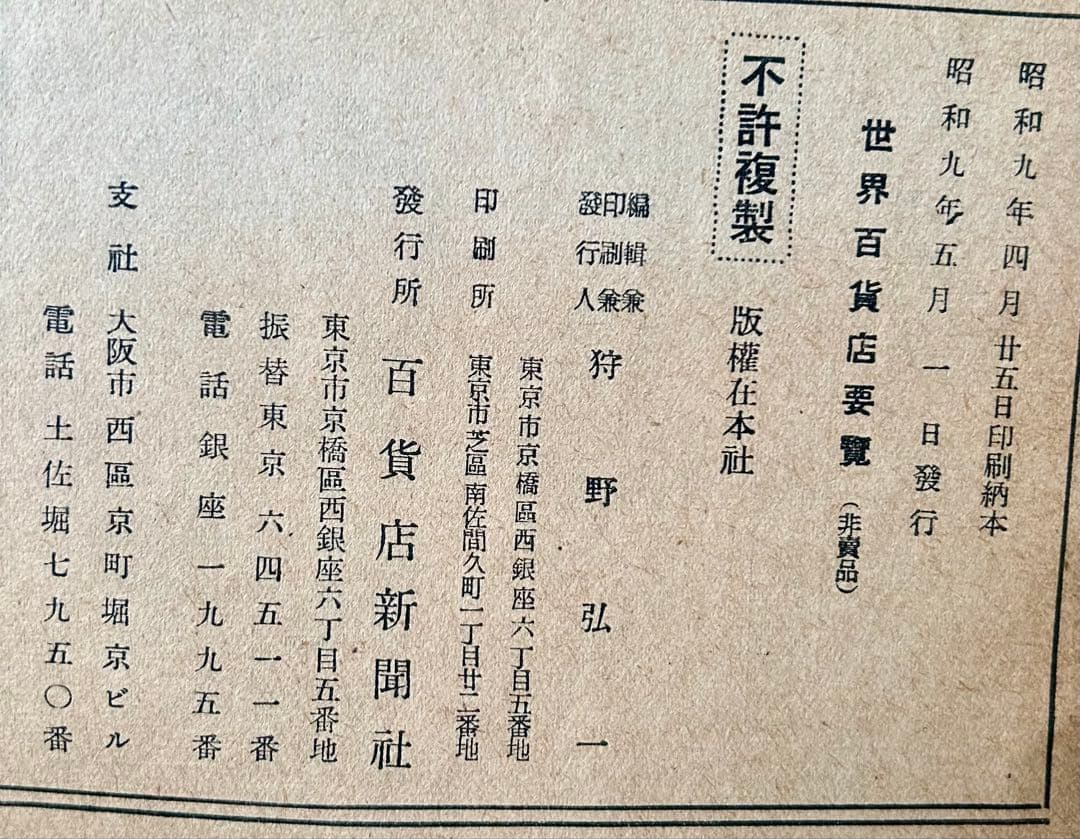 昭和九年四月廿五日印刷納本
昭和九年五月一日發行
世界百貨店要覽(非賣品)
不許複製
版權在本社
編輯兼
印刷兼
發行人
狩野弘一
東京市京橋區西銀座六丁目五番地
印刷所
東京市芝區南佐間久町一丁目廿二番地
發行所
百貨店新聞社
東京市京橋區西銀座六丁目五番地
振替東京六四五一一番
電話銀座一九九五番
支社
大阪市西區京町堀京ビル
電話土佐堀七九五〇番